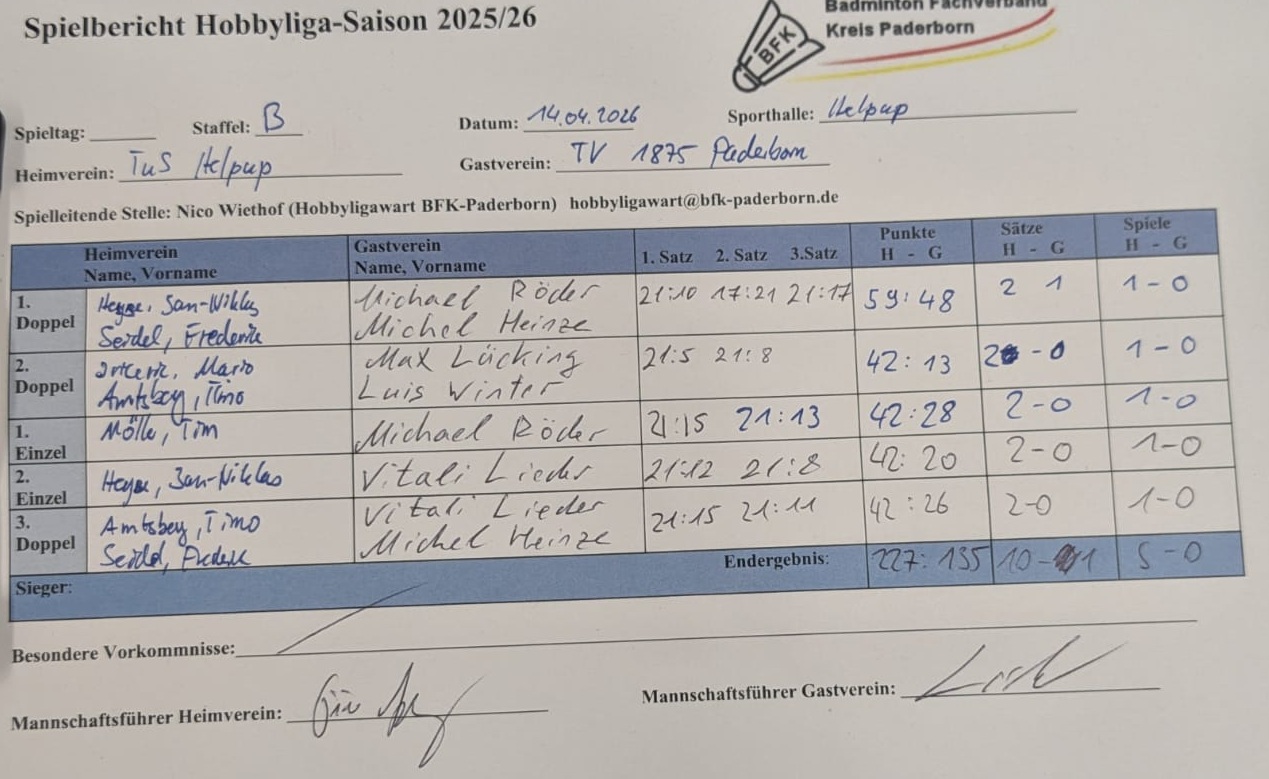 Spielbericht Hobbyliga-Saison 2025/26
Badminton Fachverband
Kreis Paderborn
BFK
Spieltag: Staffel: B Datum: 14.04.2026 Sporthalle: Helpup
Heimverein: TuS Helpup Gastverein: TV 1875 Paderborn
Spielleitende Stelle: Nico Wiethof (Hobbyligawart BFK-Paderborn) hobbyligawart@bfk-paderborn.de
Heimverein Name, Vorname Gastverein Name, Vorname 1. Satz 2. Satz 3.Satz Punkte H - G Sätze H - G Spiele H - G
1. Doppel Michael Röder 21:10 17:21 21:17 59:48 2 1 1-0
Seidel, Frederik Michel Heinze
2. Doppel Mario Max Lücking 21:5 21:8 42:13 2 - 0 1-0
Amtsbey, Timo Luis Winter
1. Einzel Mölle, Tim Michael Röder 21:15 21:13 42:28 2-0 1-0
2. Einzel Jan-Niklas Vitali Lieder 21:12 21:8 42:20 2-0 1-0
3. Doppel Amtsbey, Timo Vitali Lieder 21:15 21:11 42:26 2-0 1-0
Seidel, Michel Heinze
Sieger: Endergebnis: 227:135 10-1 5-0
Besondere Vorkommnisse:
Mannschaftsführer Heimverein: Mannschaftsführer Gastverein: